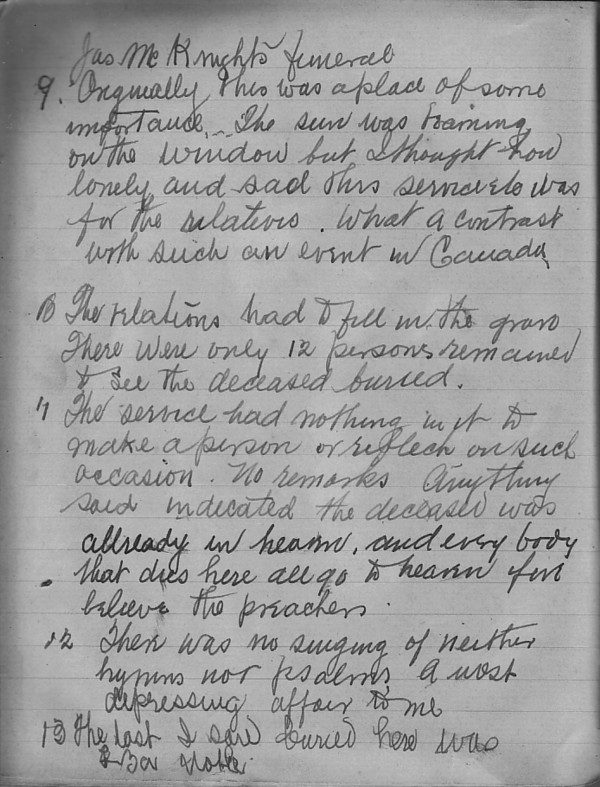 Jas McKnights funeral
9. Originally this was a place of some
importance. The sun was
on the window but I thought how
lonely and sad this service was
for the relatives. What a contrast
with such an event in Canada
10 The relations had to fill in the grave
There were only 12 persons remained
to see the deceased buried.
11 The service had nothing in it to
make a person or reflect on such
occasion. No remarks Anything
said indicated the deceased was
allready in heaven, and every body
that dies here all go to heaven
believe the preachers.
12 There was no singing of neither
hymns nor psalms a most
depressing affair to me
13 The last I saw buried here was